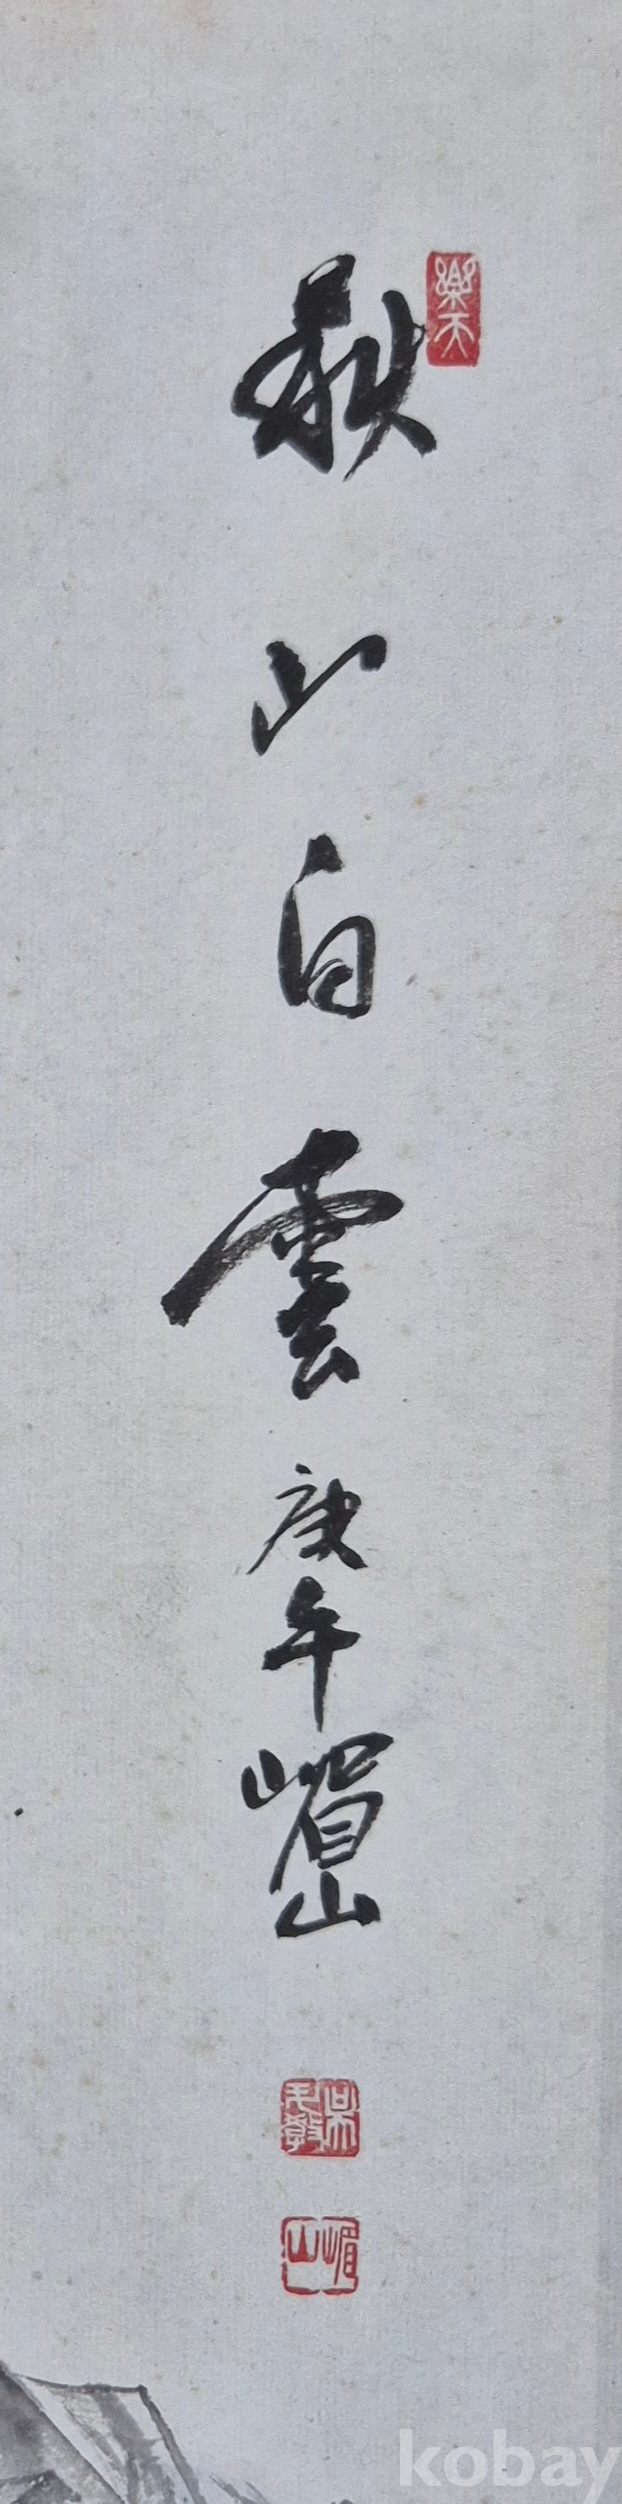 樂天
秋山白雲 庚午 嵋山
嵋山
kobay